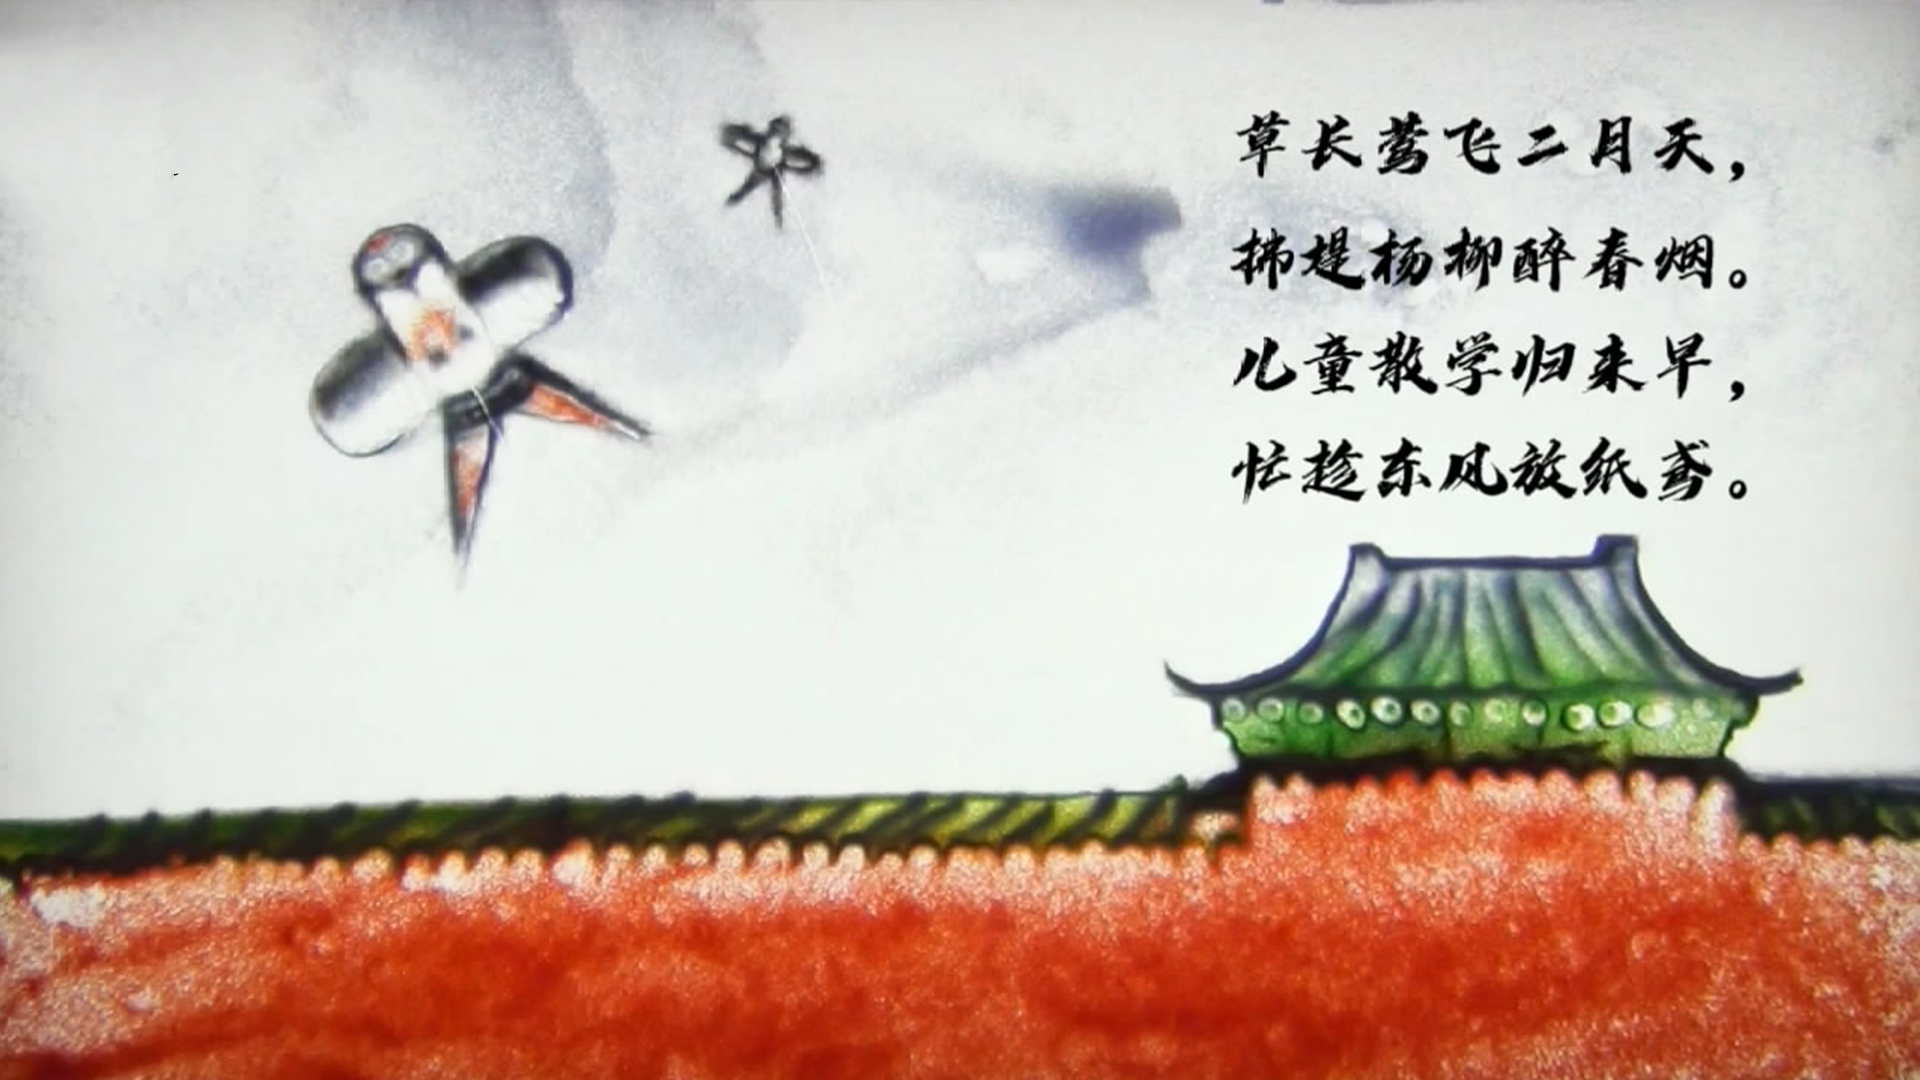 草长莺飞二月天，
拂堤杨柳醉春烟。
儿童散学归来早，
忙趁东风放纸鸢。